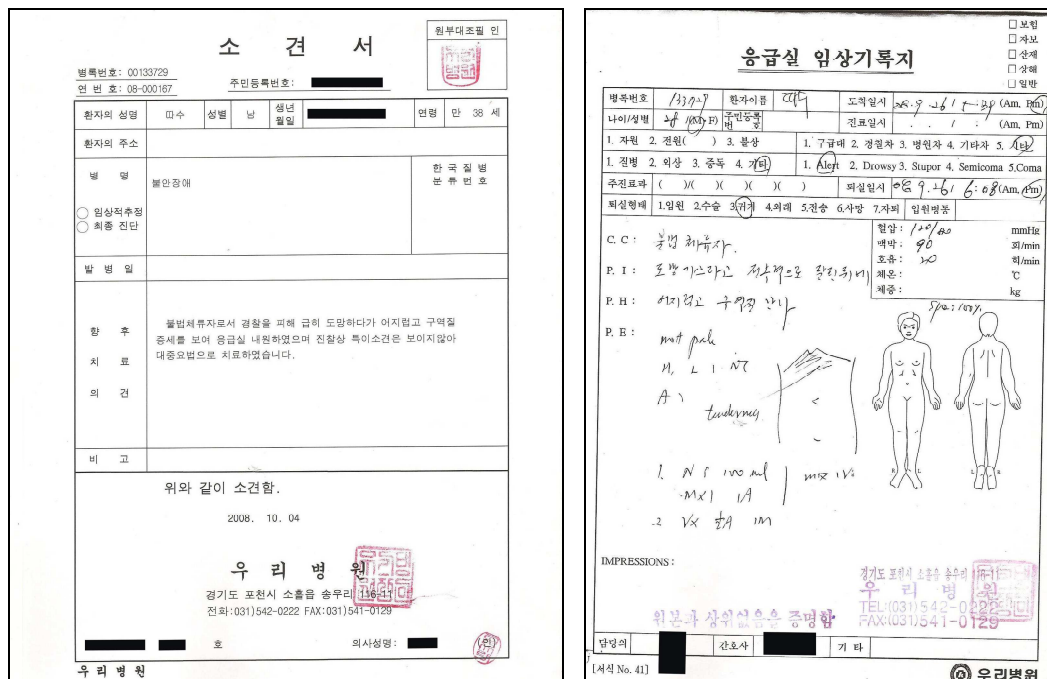 원부대조필 인
소 견 서
병록번호: 00133729
연 번 호: 08-000167
주민등록번호:
환자의 성명 따수 성별 남 생년월일 연령 만 38 세
환자의 주소
병 명
불안장애
한 국 질 병
분 류 번 호
○ 임상적추정
○ 최종 진단
발 병 일
향 후 치 료 의 견
불법체류자로서 경찰을 피해 급히 도망하다가 어지럽고 구역질
증세를 보여 응급실 내원하였으며 진찰상 특이소견은 보이지않아
대중요법으로 치료하였습니다.
비 고
위와 같이 소견함.
2008. 10. 04
우 리 병 원
경기도 포천시 소흘읍 송우리 116-11
전화:031)542-0222 FAX:031)541-0129
호 의사성명: (인)
우 리 병 원
□ 보험
□ 자보
□ 산재
□ 상해
□ 일반
응급실 임상기록지
병록번호 133729 환자이름 따수 도착일시 (Am, Pm)
나이/성별 (M, F) 주민등록번호 진료일시 . . : (Am, Pm)
1. 자원 2. 전원( ) 3. 불상 1. 구급대 2. 경찰차 3. 병원차 4. 기타자 5. 기타
1. 질병 2. 외상 3. 중독 4. 기타 1. Alert 2. Drowsy 3. Stupor 4. Semicoma 5.Coma
주진료과 ( )/( )( )( )( ) 퇴실일시 08. 9. 26 6:08 (Am, Pm)
퇴실형태 1.입원 2.수술 3.귀가 4.외래 5.전송 6.사망 7.자퇴 입원병동
혈압: 120/80 mmHg
맥박: 90 회/min
호흡: 20 회/min
체온: ℃
체중: kg
C. C: 불법 체류자.
P. I:
P. H: 어지럽고 구역질 난다
P. E:
not pale
tenderness
R L L R
1. N S 100 ml mix IV
IMPRESSIONS:
경기도 포천시 소흘읍 송우리 116-11
우 리 병 원
TEL:(031)542-0222
FAX:(031)541-0129
원본과 상위없음을 증명함
담당의 간호사 기 타
[서식 No. 41]
우리병원